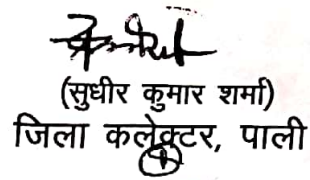 (सुधीर कुमार शर्मा)
जिला कलेक्टर, पाली